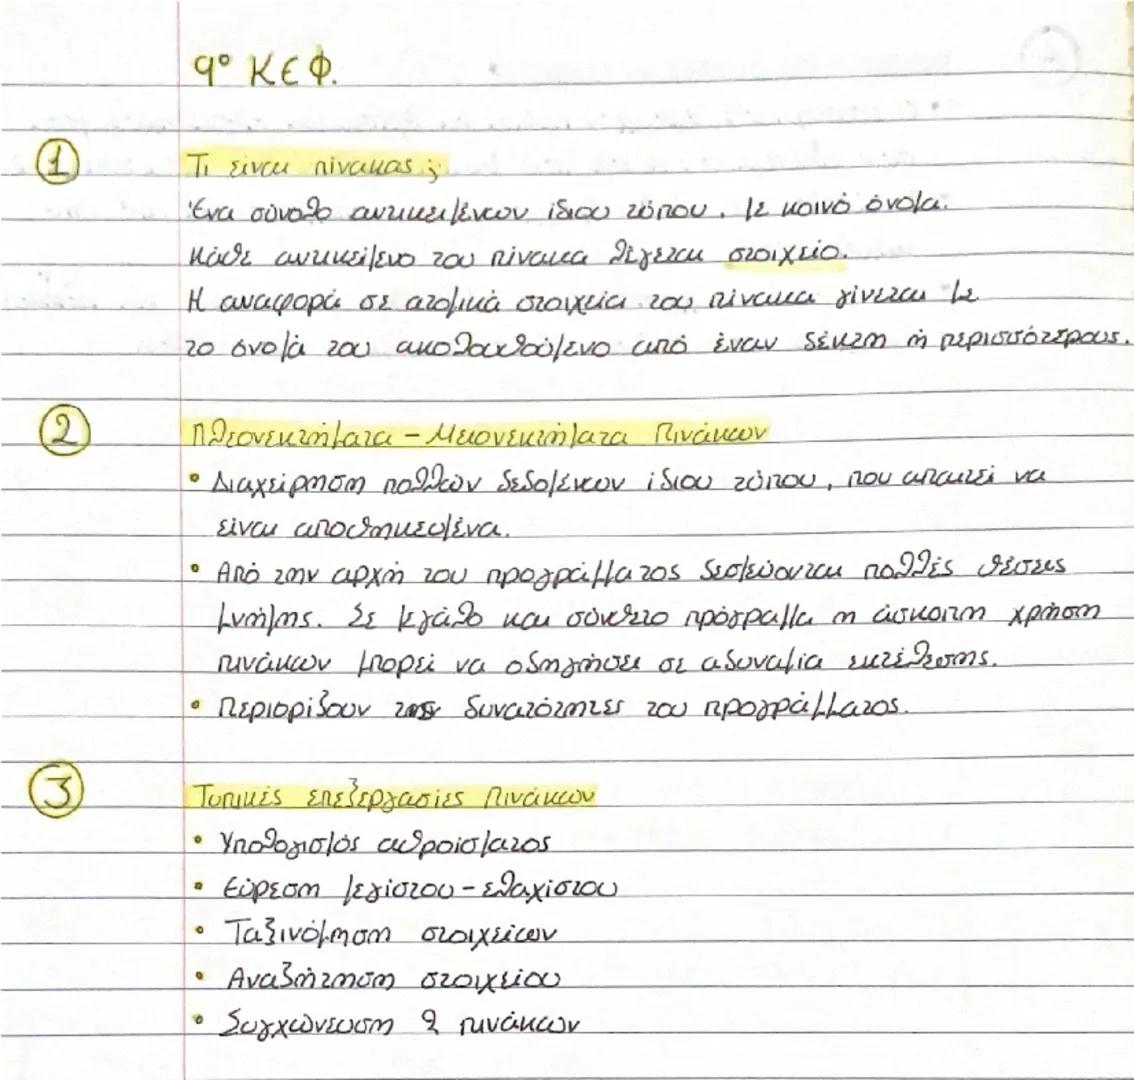 9° ΚΕΦ.
① Τι είναι πίνακας;
Ένα σύνολο αντικειμένων ίδιου τύπου, με κοινό όνομα.
Κάθε αντικείμενο του πίνακα λέγεται στοιχείο.
Η αναφορά σε ατομικά στοιχεία του πίνακα γίνεται με
το όνομά του ακολουθούμενο από έναν δείκτη ή περισσότερους.
② Πλεονεκτήματα - Μειονεκτήματα Πινάκων
• Διαχείρηση πολλών δεδομένων ίδιου τύπου, που απαιτεί να
είναι αποθηκευμένα.
• Από την αρχή του προγράμματος δεσμεύονται πολλές θέσεις
μνήμης. Σε μεγάλο και σύνθετο πρόγραμμα η άσκοπη χρήση
πινάκων μπορεί να οδηγήσει σε αδυναμία εκτέλεσης.
• Περιορίζουν τις δυνατότητες του προγράμματος.
③ Τυπικές επεξεργασίες Πινάκων
• Υπολογισμός αθροίσματος
• Εύρεση μεγίστου - ελαχίστου
• Ταξινόμηση στοιχείων
• Αναζήτηση στοιχείου
• Συγχώνευση 2 πινάκων